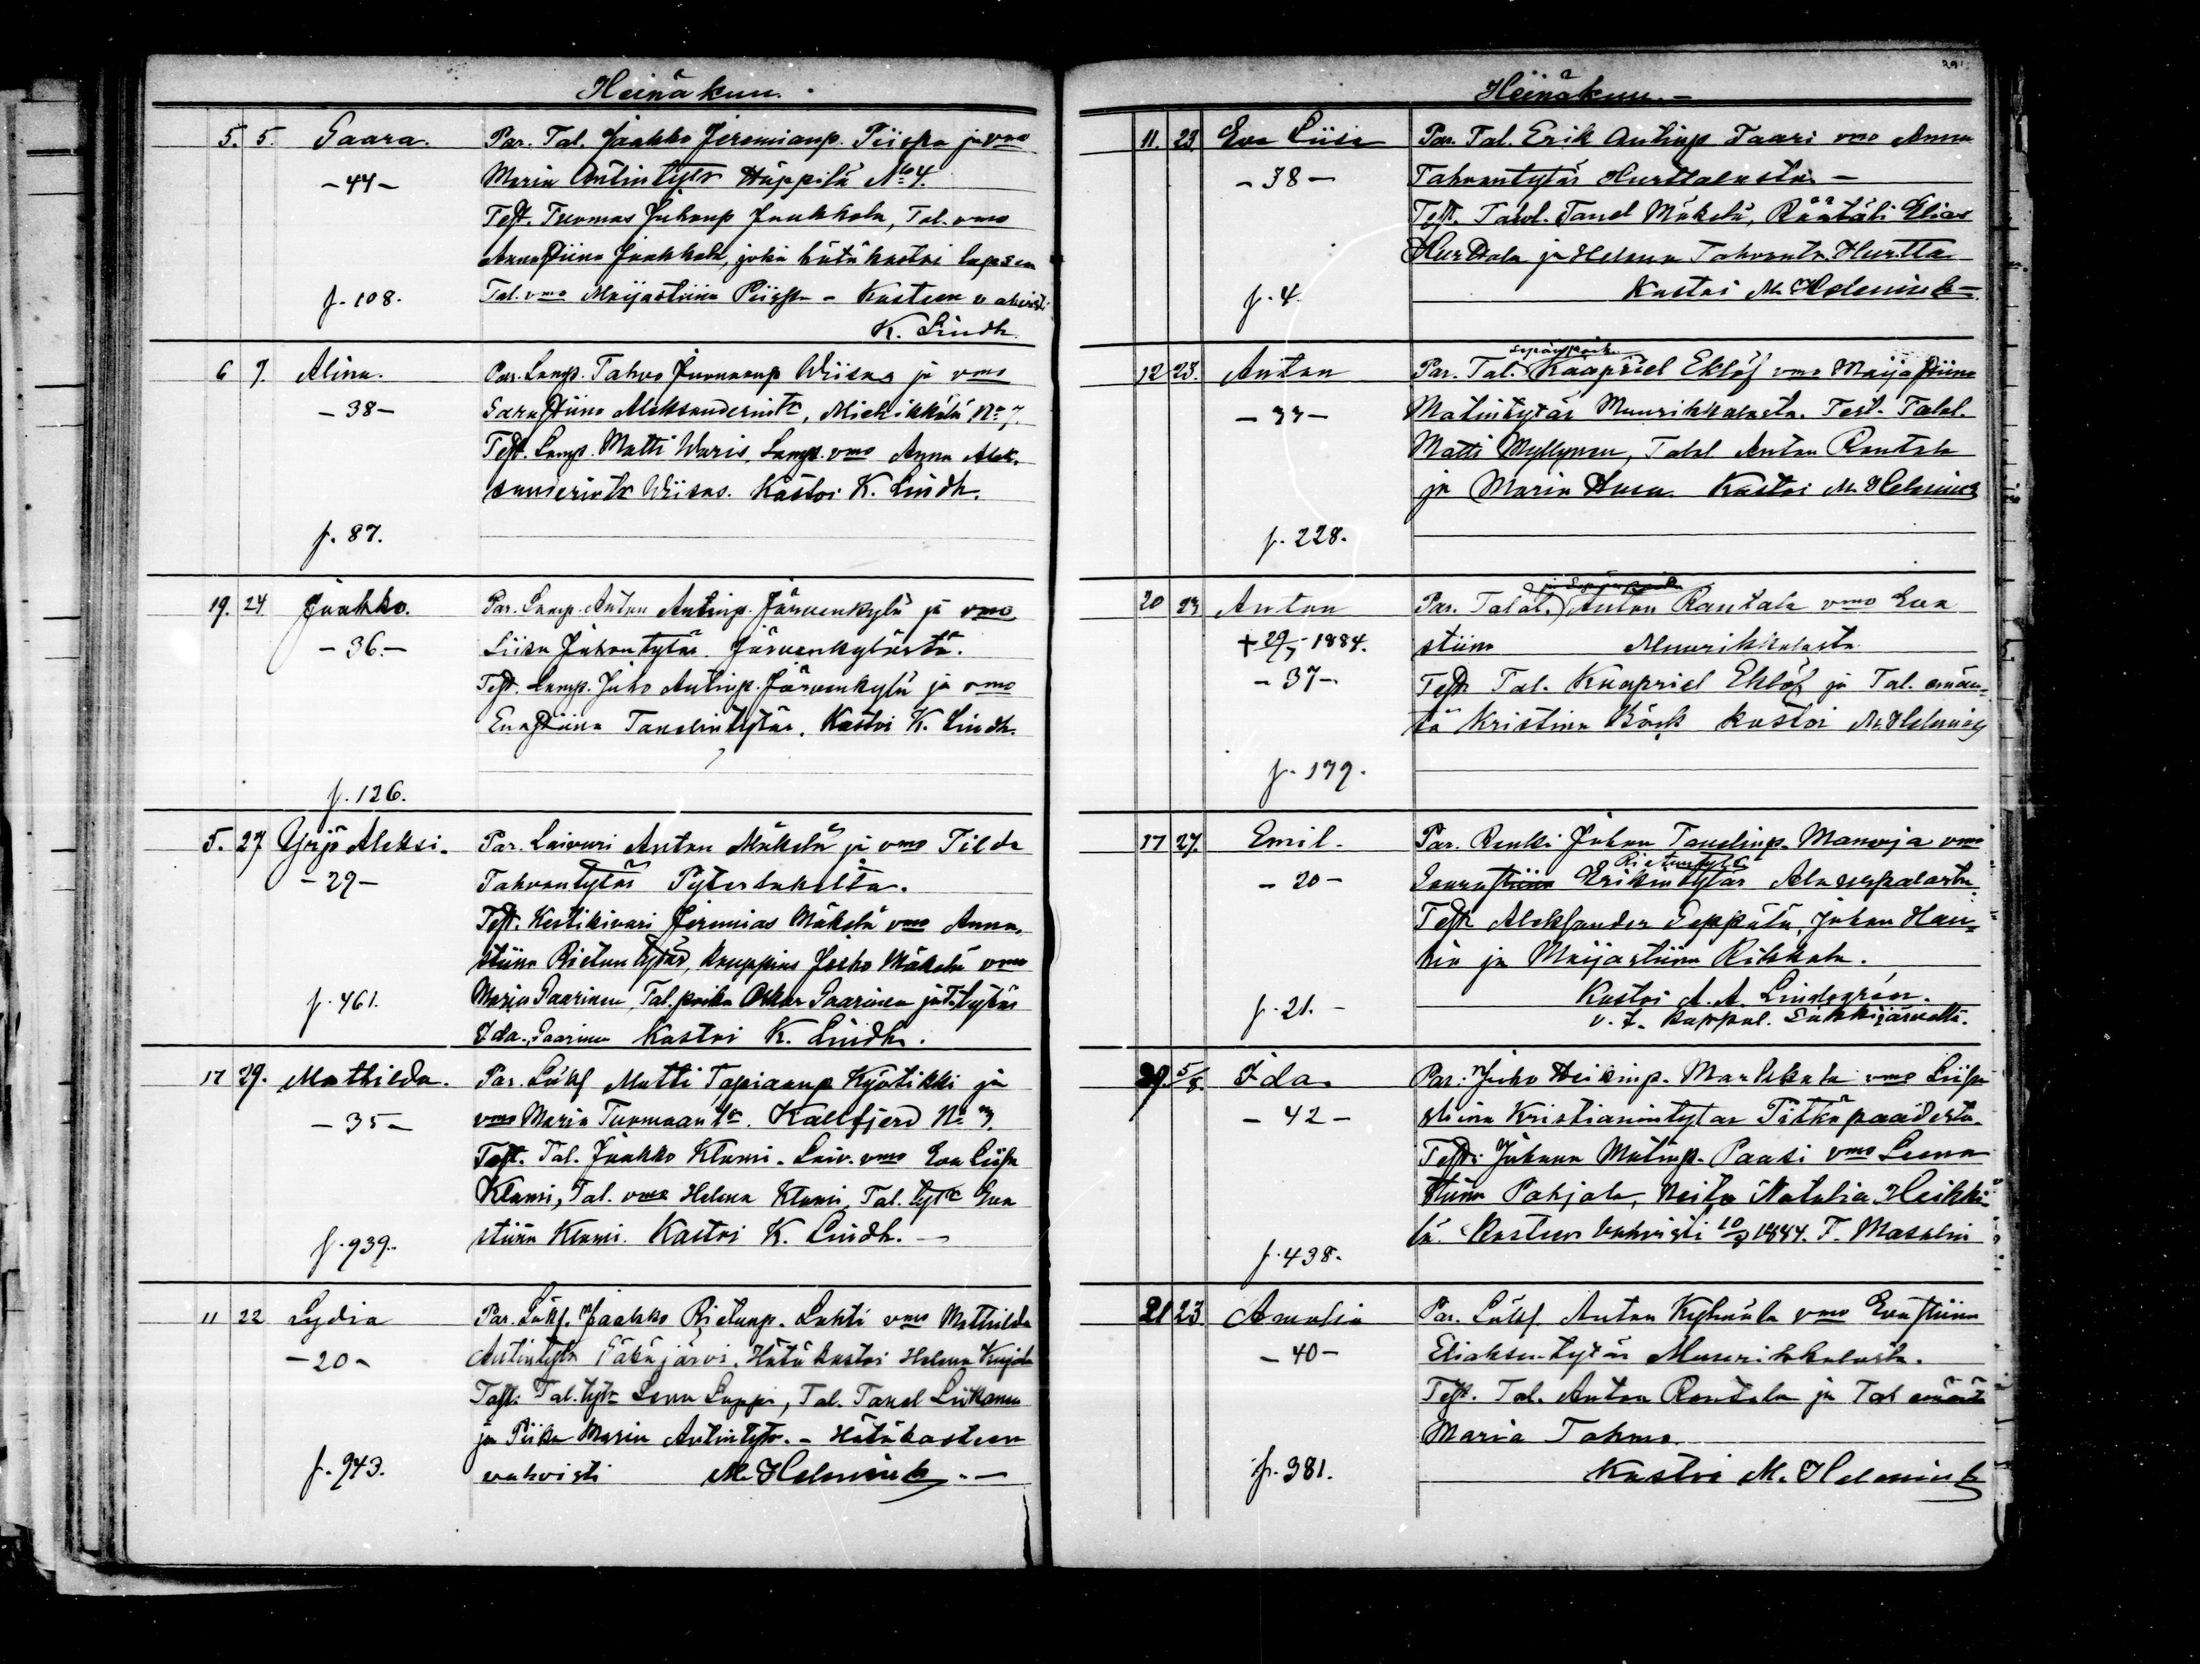 Heinäkuu.
5. 5. Saara. Par. Tal. Jaakko Jeremianp. Piispa ja vmo
-44- Maria Antintytr Häppilä No 4.
Test. Tuomas Juhanp Jaakkola, Tal. vmo
Annastiina Jaakkola, joka hätäkastoi lapsen
f. 108. Tal. vmo Maijastiina Piispa - Kasteen vahvisti
K. Lindh.
6 7. Alina. Par. Lamp. Tahvo Wiisas ja vmo
-38- Saarastiina Aleksanderintr, Miehikkälä No 7.
Test. Lamp. Matti Waris, Lamp. vmo Anna Alek-
santerintr Wiisas. Kastoi K. Lindh.
f. 87.
19. 24 Jaakko. Par. Lamp. Antan Antinp. Järvenkylä ja vmo
-36.- Liisa Juhontytär Järvenkylästä.
Test. Lamp. Juho Antinp. Järvenkylä ja vmo
Evastiina Tanelintytär. Kastoi K. Lindh.
f. 126.
5. 27 Yrjö Aleksi. Par. Laivuri Antan Mäkelä ja vmo Tilda
-29- Tahvontytär Pyterlahelta.
Test. Kestikivari Jeremias Mäkelä vmo Anna-
stiina Rietuntytär, kauppias Juho Mäkelä vmo
f. 461. Maria Saarinen, Tal. poika Oskar Saarinen ja T. tytär
Ida Saarinen Kastoi K. Lindh.
17 29. Mathilda. Par. Lükf Matti Tapiaanp Kyötikki ja
-35- vmo Maria Tuomaantr. Kallfjerd No 3.
Test. Tal. Jaakko Klami. Laiv. vmo Eva Liisa
Klami, Tal. vmo Helena Klami, Tal. tytr Eva
f. 939. stiina Klami. Kastoi K. Lindh. -
11 22 Lydia Par. Lükf. Jaakko Rietunp. Lahti vmo Mathilda
-20- Antintytr Säkäjärvi. Hätäkastoi Helena
Test: Tal. tytr Leena Lappi, Tal. Tanel Liikanen
ja Piika Maria Antintytr. - Hätäkasteen
f. 943. vahvisti M. Helenius. -
Heinäkuu. -
11. 23. Eva Liisa Par. Tal. Erik Antinp Taari vmo Anna
-38- Tahvontytär Hurttalasta -
Test. Tal. Tanel Mäkelä, Räätäli Elias
Hurttala ja Helena Tahvontr. Hurtta.
f. 4. Kastoi M. Helenius -
12 23. Antan Par. Tal. sepänpoika Kaapriel Eklöf vmo Maijastiina
-33- Matintytär Muurikkalasta. Test. Talol.
Matti Myllynen, Talol Antan Rantala
ja Maria Husu. Kastoi M. Helenius
f. 228.
20 23 Antan Par. Talol. Antan Rantala vmo Eva
+ 29/7 1884. stiina Muurikkalasta
-37- Test Tal. Kaapriel Eklöf ja Tal. emän-
tä Kristina Böök kastoi M. Helenius
f. 179.
17 27. Emil. Par. Renki Juhan Tanelinp. Mamoja vmo
-20- Saarastiina Erikintytär Rietuntytr Alaurpalasta
Test Aleksander Seppälä, Juhan Han-
nia ja Maijastiina Rikkola.
Kastoi A. A. Lindegrén.
f. 21. - v. t. kappal. Säkkijärvellä.
29. 5/8. Ida. Par: Juho Heikinp. Martikala vmo Liisa
-42- stiina Kristianintytar Pitkäpaadesta.
Test: Juhana Matinp. Paasi vmo Leena
stiina Pohjola, Neito Natalia Heikki-
lä. Kasteen vahvisti 10/8 1884. F. Masalin
f. 438.
21 23 Amalia Par. Lükf. Antan Kylmälä vmo Evastiina
-40- Eliaksentytär Muurikkalasta.
Test. Tal. Antan Rantala ja Tal emäntä
Maria Tahmo.
f. 381. Kastoi M. Helenius